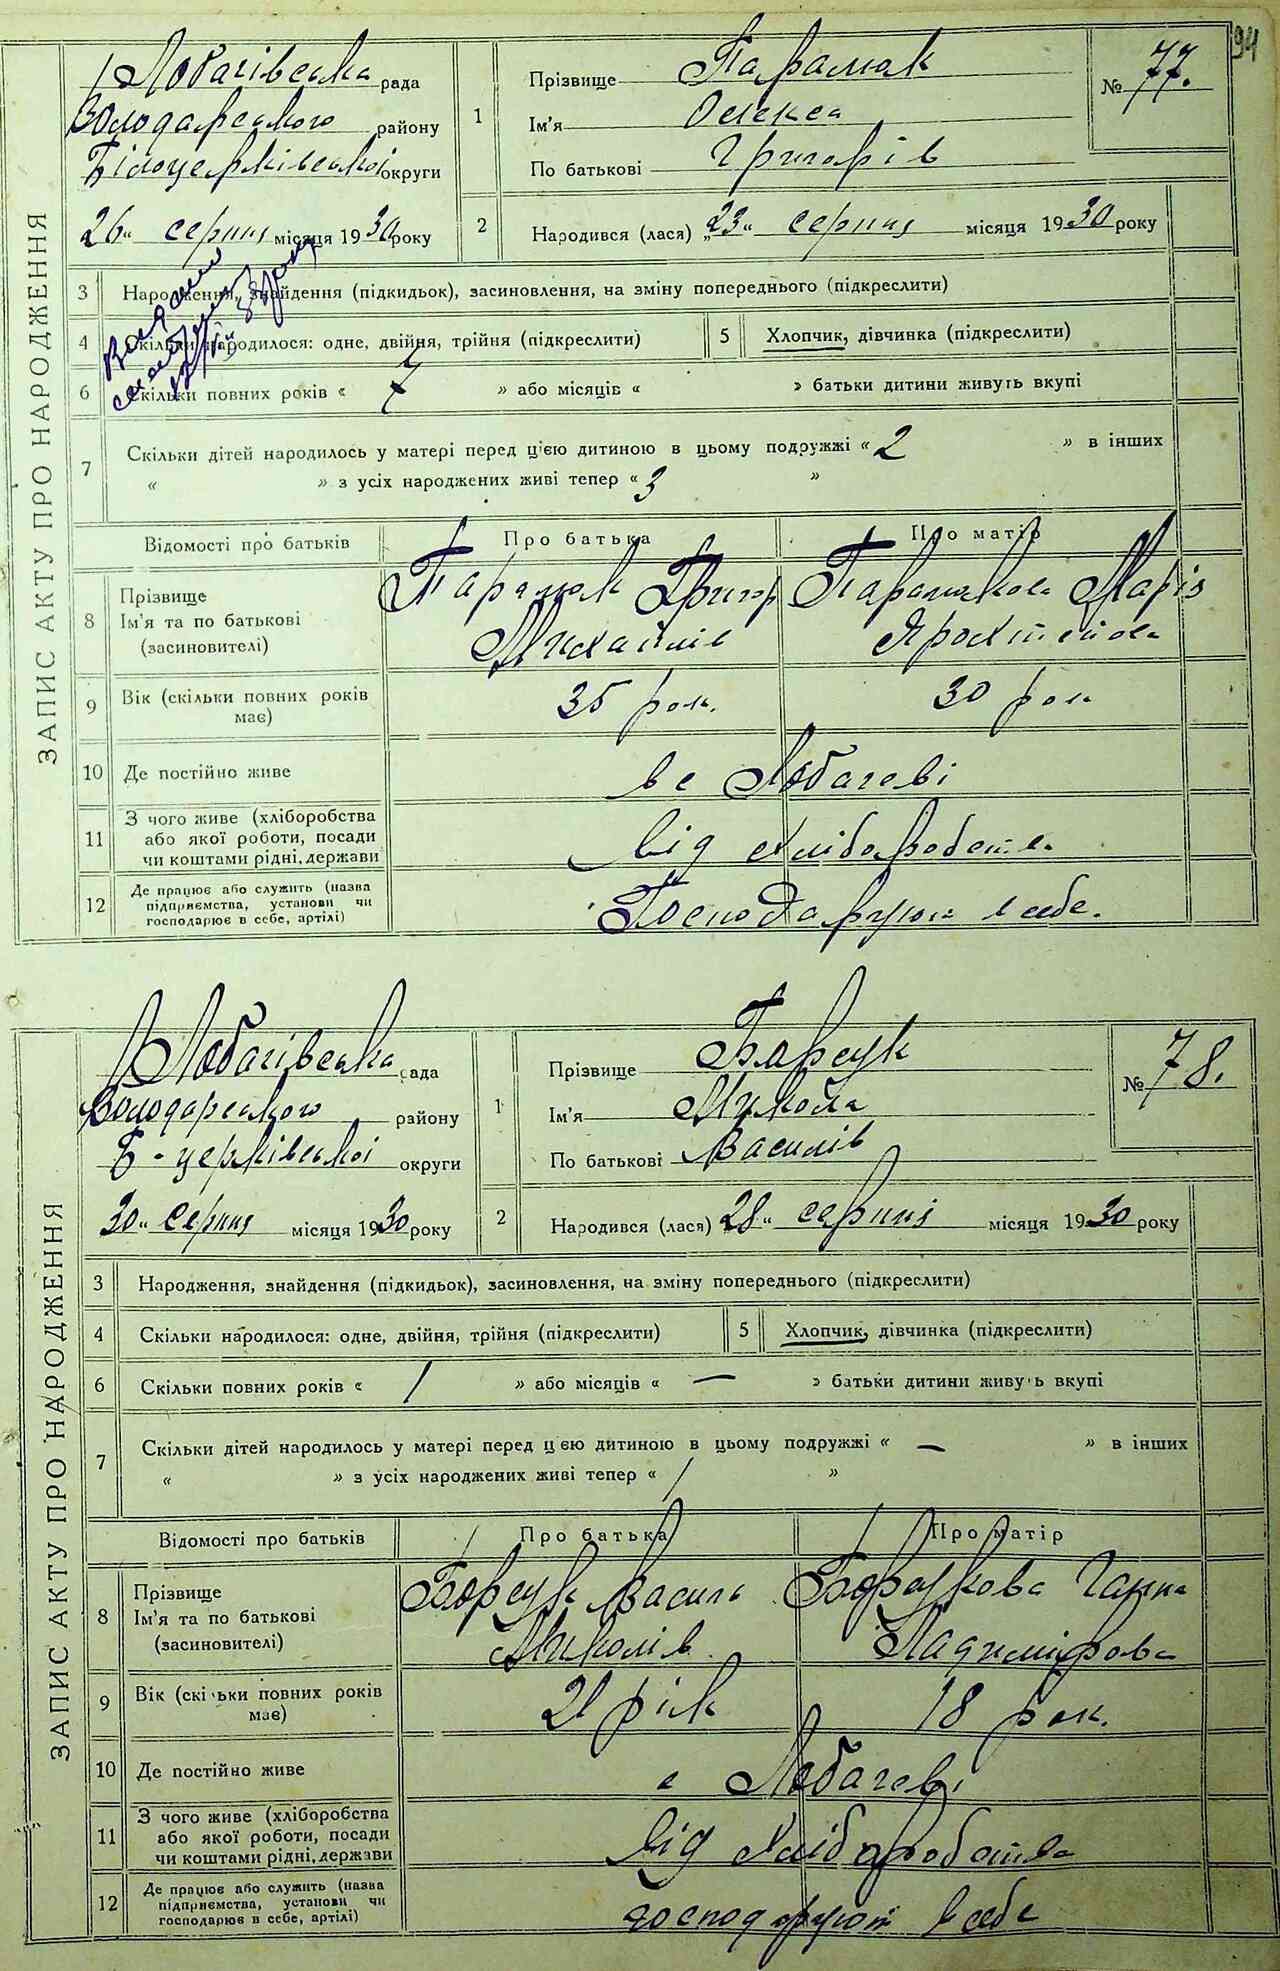 94
Лобачівська рада
Володарського району
Білоцерківської округи
26 серпня місяця 1930 року
1 Прізвище Парамок
Ім'я Олекса
По батькові Григорів
№ 77.
2 Народився (лася) „23“ серпня місяця 1930 року
ЗАПИС АКТУ ПРО НАРОДЖЕННЯ
3 Народження, знайдення (підкидьок), засиновлення, на зміну попереднього (підкреслити)
4 Скільки народилося: одне, двійня, трійня (підкреслити)
5 Хлопчик, дівчинка (підкреслити)
6 Скільки повних років « 7 » або місяців « » батьки дитини живуть вкупі
7 Скільки дітей народилось у матері перед цією дитиною в цьому подружжі « 2 » в інших
« » з усіх народжених живі тепер « 3 »
Відомості про батьків Про батька Про матір
8 Прізвище
Ім'я та по батькові
(засиновителі)
Парамок Григор
Михайлів
Парамокова Марія
9 Вік (скільки повних років має) 35 рок. 30 рок
10 Де постійно живе в с Лобачеві
11 З чого живе (хліборобства
або якої роботи, посади
чи коштами рідні, держави
від хліборобства
12 Де працює або служить (назва
підприємства, установи чи
господарює в себе, артілі)
Господарують в себе.
Лобачівська рада
Володарського району
Б-церківської округи
30 серпня місяця 1930 року
1 Прізвище Барсук
Ім'я Микола
По батькові Василів
№ 78.
2 Народився (лася) 28 серпня місяця 1930 року
ЗАПИС АКТУ ПРО НАРОДЖЕННЯ
3 Народження, знайдення (підкидьок), засиновлення, на зміну попереднього (підкреслити)
4 Скільки народилося: одне, двійня, трійня (підкреслити)
5 Хлопчик, дівчинка (підкреслити)
6 Скільки повних років « 1 » або місяців « — » батьки дитини живуть вкупі
7 Скільки дітей народилось у матері перед цією дитиною в цьому подружжі « — » в інших
« » з усіх народжених живі тепер « 1 »
Відомості про батьків Про батька Про матір
8 Прізвище
Ім'я та по батькові
(засиновителі)
Борсук Василь
Миколів
Борсукова Ганна
9 Вік (скільки повних років має) 21 рік 18 рок.
10 Де постійно живе с Лобачеві
11 З чого живе (хліборобства
або якої роботи, посади
чи коштами рідні, держави
від хліборобства
12 Де працює або служить (назва
підприємства, установи чи
господарює в себе, артілі)
господарують в себе